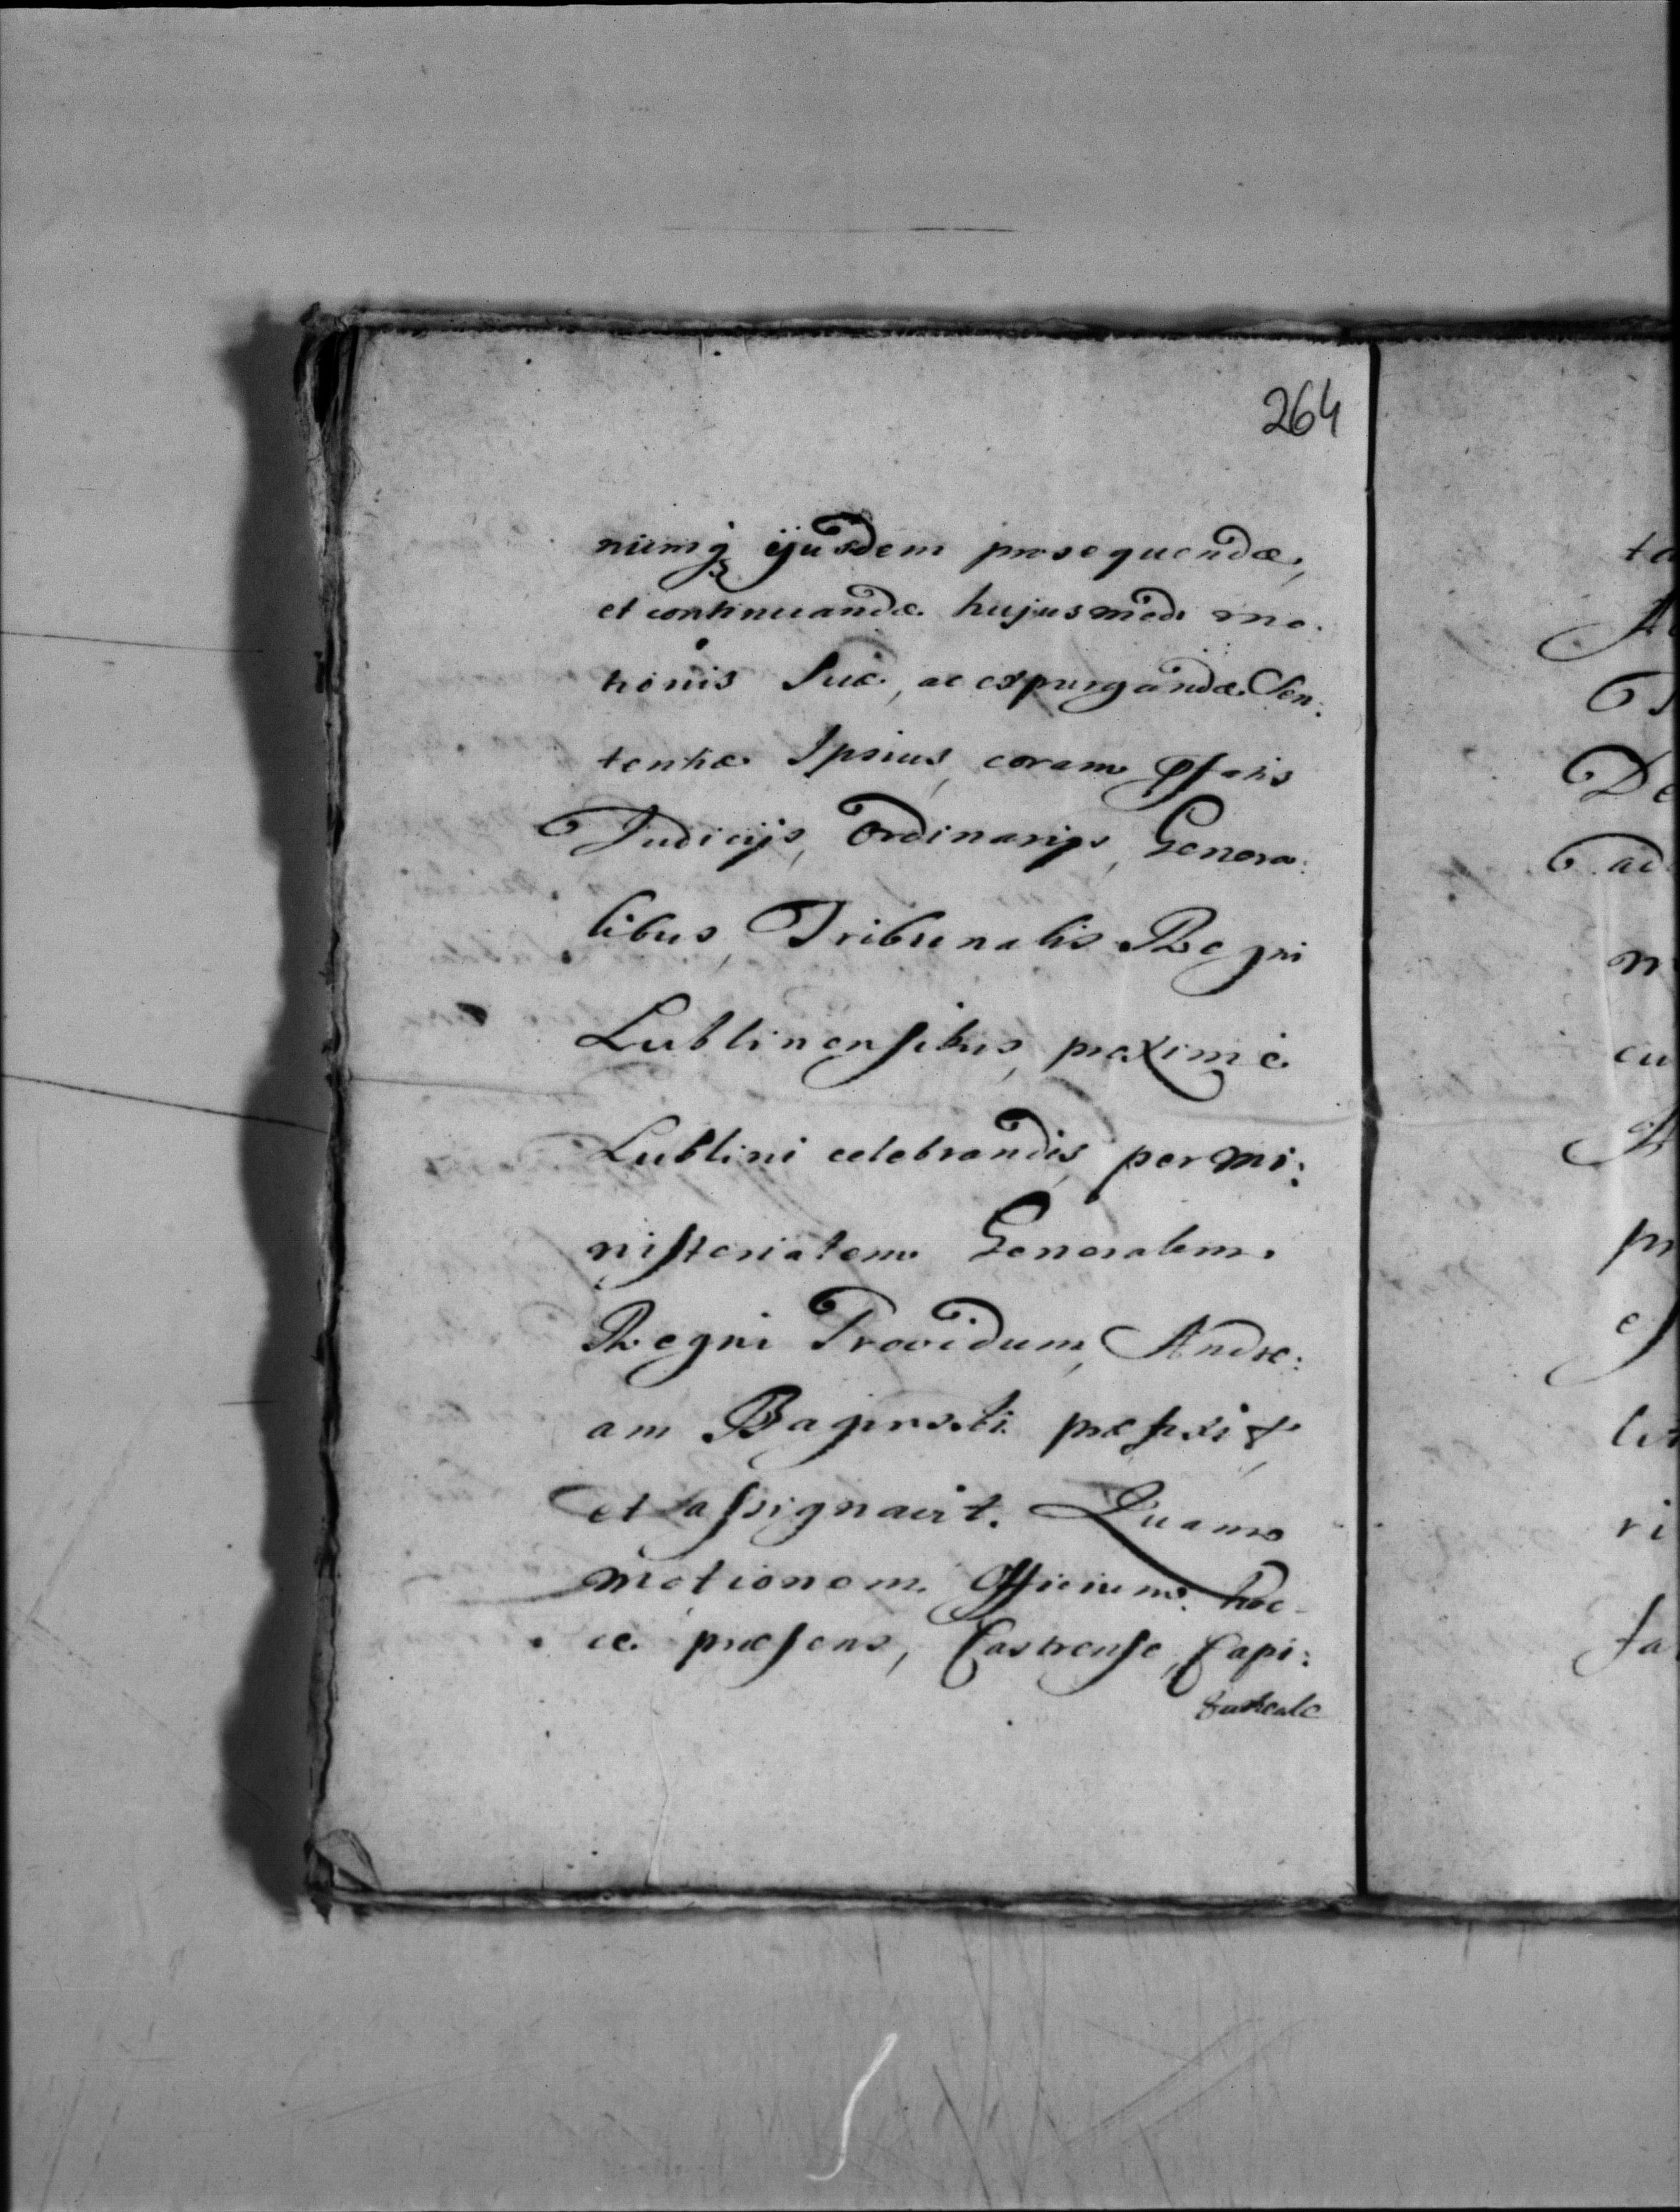 264
numq₃ ejusdem prosequendæ,
et continuandæ hujusmodi mo:
tionis Suæ, ac expurgandæ Sen:
tentiæ Ipsius, coram Pſatis
Judicijs, Ordinarijs, Genera:
libus, Tribunalis Regni
Lublinenſibus, proximé
Lublini celebrandis, per Mi:
niſterialem Generalem
Regni Providum, Andre:
am præfixit,
et aſsignavit. Quam
Motionem Officium hoc-
ce præſens, Castrenſe, Capi:
taneale